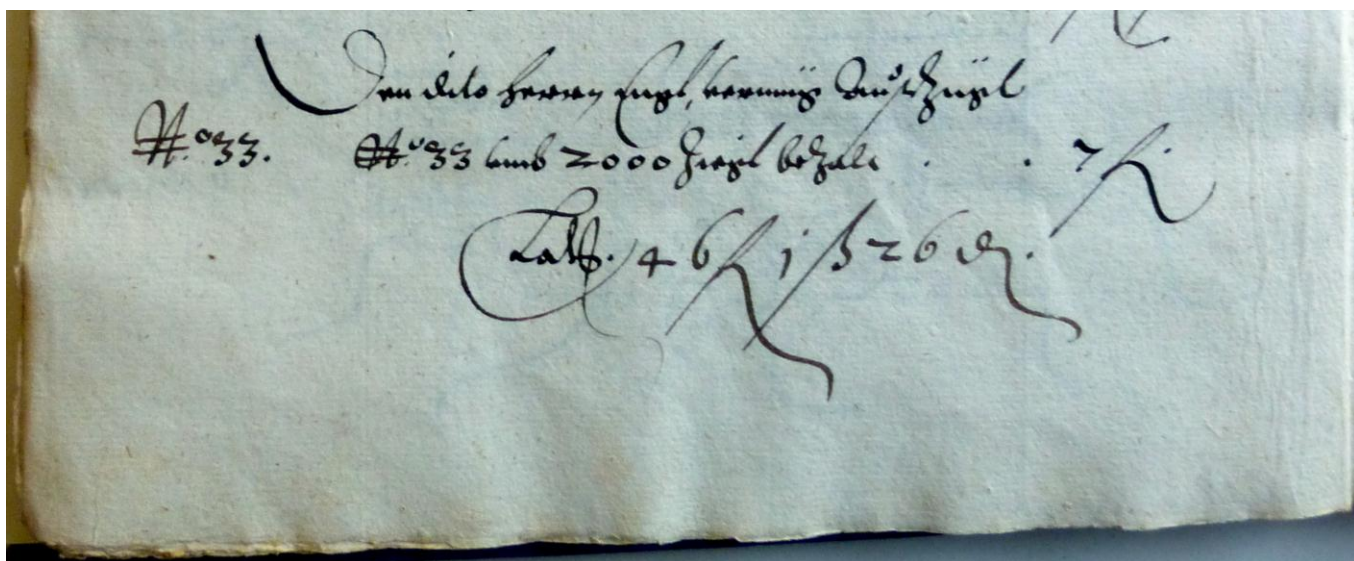 Den dito Herrn Engl, vermüg Ausßzügl
N.º 33. N.º 33 umb 2000 Ziegl bezalt . . 7 fl.
Lat[us]. 46 fl 1 ß 26 d.